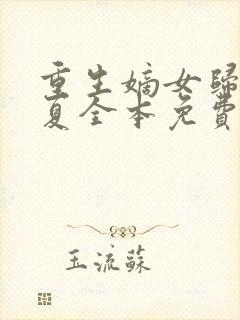 重生嫡女歸
夏全本免費
玉流蘇